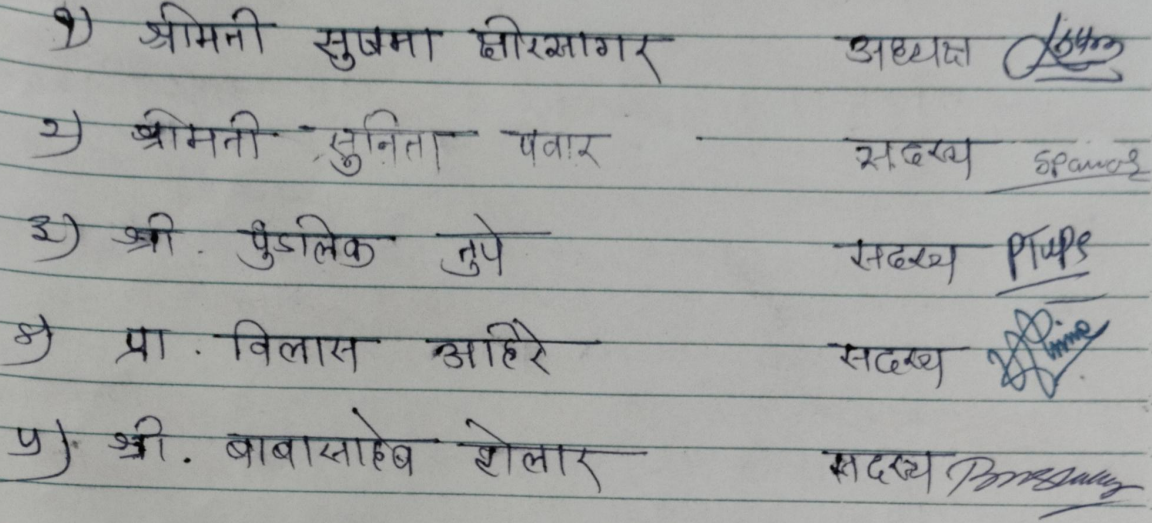 १) श्रीमती सुषमा क्षीरसागर अध्यक्ष
२) श्रीमती सुनिता पवार सदस्य SPawar
३) श्री. पुंडलिक तुपे सदस्य PTupe
४) प्रा. विलास आहिरे सदस्य
५) श्री. बाबासाहेब शेलार सदस्य